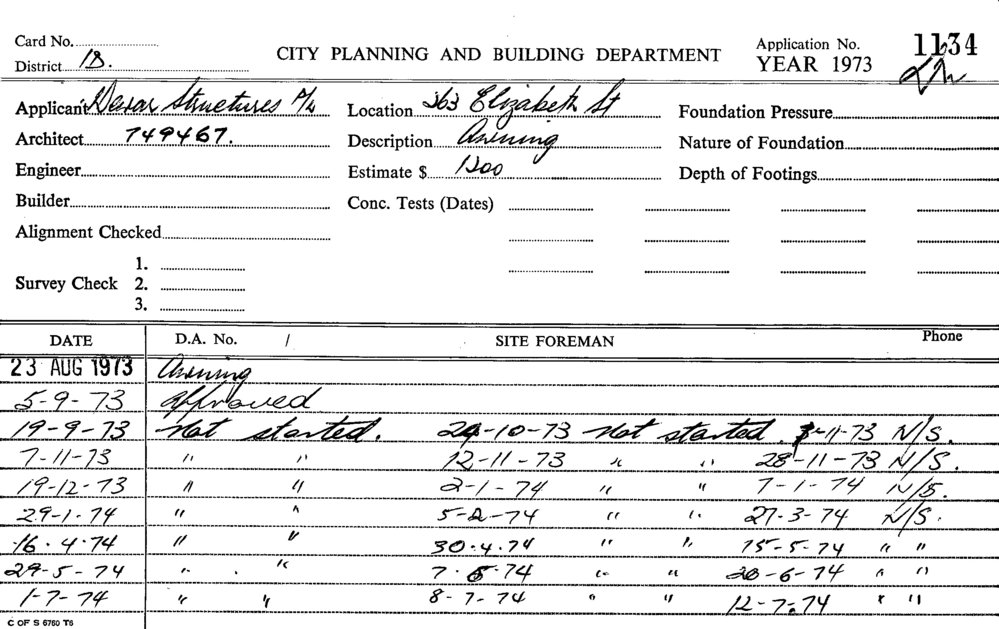 Card No.
District 13.
CITY PLANNING AND BUILDING DEPARTMENT
Application No. 1134
YEAR 1973
Applicant Dewar Structures P/L
Architect 749467.
Engineer
Builder
Alignment Checked
Survey Check 1.
2.
3.
Location 363 Elizabeth St
Description Awning
Estimate $ 1200
Conc. Tests (Dates)
Foundation Pressure
Nature of Foundation
Depth of Footings
DATE D.A. No. / SITE FOREMAN Phone
23 AUG 1973 Awning
5-9-73 approved
19-9-73 Not started. 24-10-73 Not started. 11-73 N/S.
7-11-73 " " 12-11-73 " " 28-11-73 N/S.
19-12-73 " " 2-1-74 " " 7-1-74 N/S.
29-1-74 " " 5-2-74 " " 27-3-74 N/S.
16.4.74 " " 30.4.74 " " 15-5-74 " "
29-5-74 " " 7.6.74 " " 20-6-74 " "
1-7-74 " " 8-7-74 " " 12-7-74 " "
C OF S 6760 T6